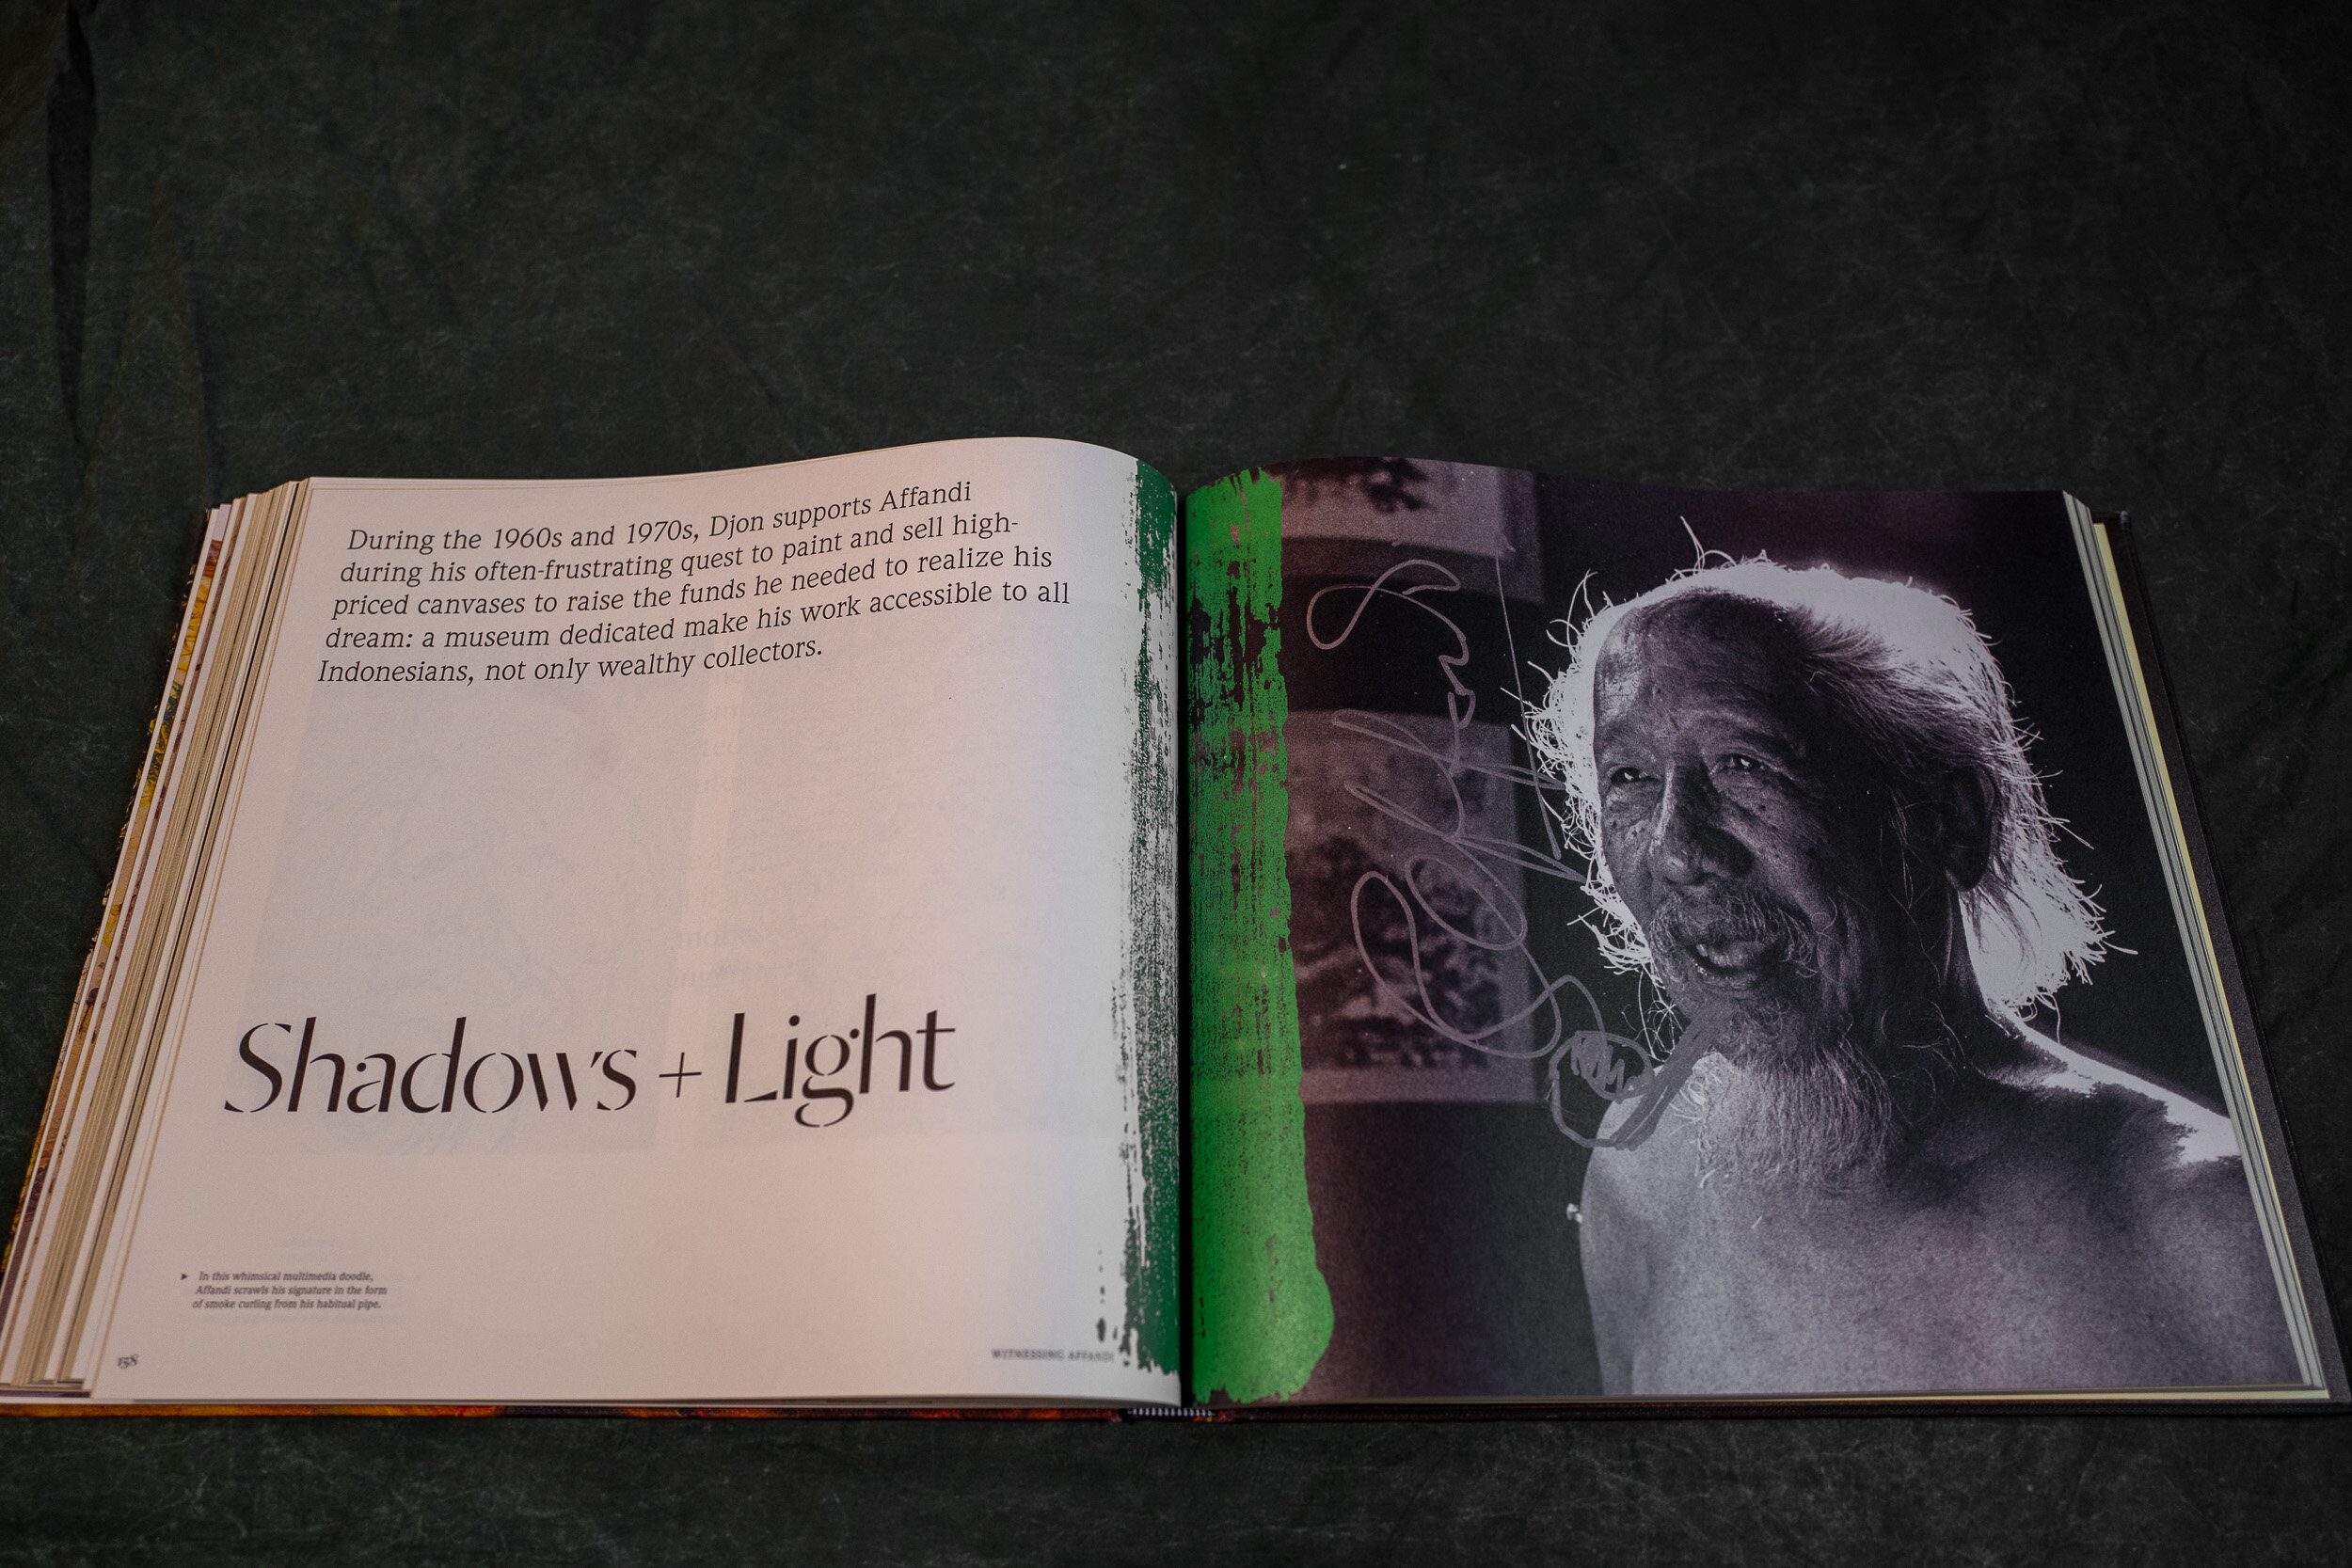 During the 1960s and 1970s, Djon supports Affandi
during his often-frustrating quest to paint and sell high-
priced canvases to raise the funds he needed to realize his
dream: a museum dedicated make his work accessible to all
Indonesians, not only wealthy collectors.
Shadows + Light
► In this whimsical multimedia doodle,
Affandi scrawls his signature in the form
of smoke curling from his habitual pipe.
158
WITNESSING AFFANDI